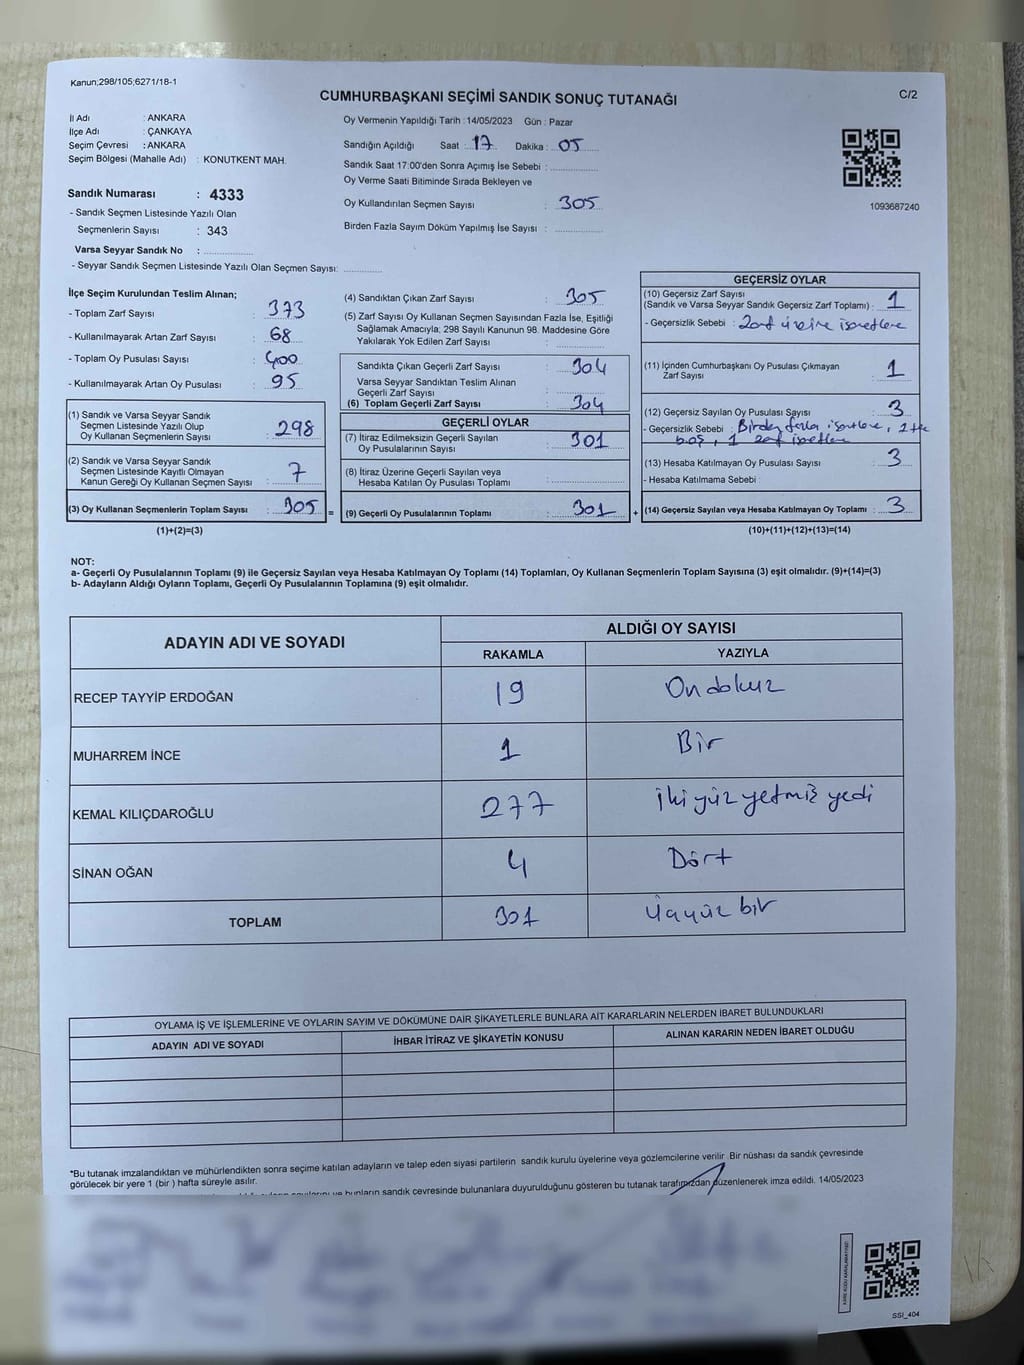 Kanun;298/105;6271/18-1
CUMHURBAŞKANI SEÇİMİ SANDIK SONUÇ TUTANAĞI
C/2
İl Adı : ANKARA
İlçe Adı : ÇANKAYA
Seçim Çevresi : ANKARA
Seçim Bölgesi (Mahalle Adı) : KONUTKENT MAH.
Sandık Numarası : 4333
- Sandık Seçmen Listesinde Yazılı Olan
Seçmenlerin Sayısı : 343
Varsa Seyyar Sandık No :
- Seyyar Sandık Seçmen Listesinde Yazılı Olan Seçmen Sayısı:
Oy Vermenin Yapıldığı Tarih : 14/05/2023 Gün : Pazar
Sandığın Açıldığı Saat : 17 Dakika : 05
Sandık Saat 17:00'den Sonra Açımış İse Sebebi :
Oy Verme Saati Bitiminde Sırada Bekleyen ve
Oy Kullandırılan Seçmen Sayısı : 305
Birden Fazla Sayım Döküm Yapılmış İse Sayısı :
1093687240
İlçe Seçim Kurulundan Teslim Alınan;
- Toplam Zarf Sayısı : 373
- Kullanılmayarak Artan Zarf Sayısı : 68
- Toplam Oy Pusulası Sayısı : 400
- Kullanılmayarak Artan Oy Pusulası : 95
(1) Sandık ve Varsa Seyyar Sandık
Seçmen Listesinde Yazılı Olup
Oy Kullanan Seçmenlerin Sayısı : 298
(2) Sandık ve Varsa Seyyar Sandık
Seçmen Listesinde Kayıtlı Olmayan
Kanun Gereği Oy Kullanan Seçmen Sayısı : 7
(3) Oy Kullanan Seçmenlerin Toplam Sayısı : 305 =
(1)+(2)=(3)
(4) Sandıktan Çıkan Zarf Sayısı : 305
(5) Zarf Sayısı Oy Kullanan Seçmen Sayısından Fazla İse, Eşitliği
Sağlamak Amacıyla; 298 Sayılı Kanunun 98. Maddesine Göre
Yakılarak Yok Edilen Zarf Sayısı :
Sandıkta Çıkan Geçerli Zarf Sayısı : 304
Varsa Seyyar Sandıktan Teslim Alınan
Geçerli Zarf Sayısı :
(6) Toplam Geçerli Zarf Sayısı : 304
GEÇERLİ OYLAR
(7) İtiraz Edilmeksizin Geçerli Sayılan
Oy Pusulalarının Sayısı : 301
(8) İtiraz Üzerine Geçerli Sayılan veya
Hesaba Katılan Oy Pusulası Toplamı :
(9) Geçerli Oy Pusulalarının Toplamı : 301 +
GEÇERSİZ OYLAR
(10) Geçersiz Zarf Sayısı
(Sandık ve Varsa Seyyar Sandık Geçersiz Zarf Toplamı) : 1
- Geçersizlik Sebebi : Zarf üzeine işaretleme
(11) İçinden Cumhurbaşkanı Oy Pusulası Çıkmayan
Zarf Sayısı : 1
(12) Geçersiz Sayılan Oy Pusulası Sayısı : 3
- Geçersizlik Sebebi : Birden fazla işaretleme,
boş, 1 zarf işaretleme
(13) Hesaba Katılmayan Oy Pusulası Sayısı : 3
- Hesaba Katılmama Sebebi :
(14) Geçersiz Sayılan veya Hesaba Katılmayan Oy Toplamı : 3
(10)+(11)+(12)+(13)=(14)
NOT:
a- Geçerli Oy Pusulalarının Toplamı (9) ile Geçersiz Sayılan veya Hesaba Katılmayan Oy Toplamı (14) Toplamları, Oy Kullanan Seçmenlerin Toplam Sayısına (3) eşit olmalıdır. (9)+(14)=(3)
b- Adayların Aldığı Oyların Toplamı, Geçerli Oy Pusulalarının Toplamına (9) eşit olmalıdır.
ADAYIN ADI VE SOYADI
ALDIĞI OY SAYISI
RAKAMLA YAZIYLA
RECEP TAYYİP ERDOĞAN 19 Ondokuz
MUHARREM İNCE 1 Bir
KEMAL KILIÇDAROĞLU 277 İkiyüz yetmiş yedi
SİNAN OĞAN 4 Dört
TOPLAM 301 Üçyüz bir
OYLAMA İŞ VE İŞLEMLERİNE VE OYLARIN SAYIM VE DÖKÜMÜNE DAİR ŞİKAYETLERLE BUNLARA AİT KARARLARIN NELERDEN İBARET BULUNDUKLARI
ADAYIN ADI VE SOYADI İHBAR İTİRAZ VE ŞİKAYETİN KONUSU ALINAN KARARIN NEDEN İBARET OLDUĞU
*Bu tutanak imzalandıktan ve mühürlendikten sonra seçime katılan adayların ve talep eden siyasi partilerin sandık kurulu üyelerine veya gözlemcilerine verilir. Bir nüshası da sandık çevresinde
görülecek bir yere 1 (bir ) hafta süreyle asılır.
bunların sandık çevresinde bulunanlara duyurulduğunu gösteren bu tutanak tarafımızdan düzenlenerek imza edildi. 14/05/2023
SSİ_404